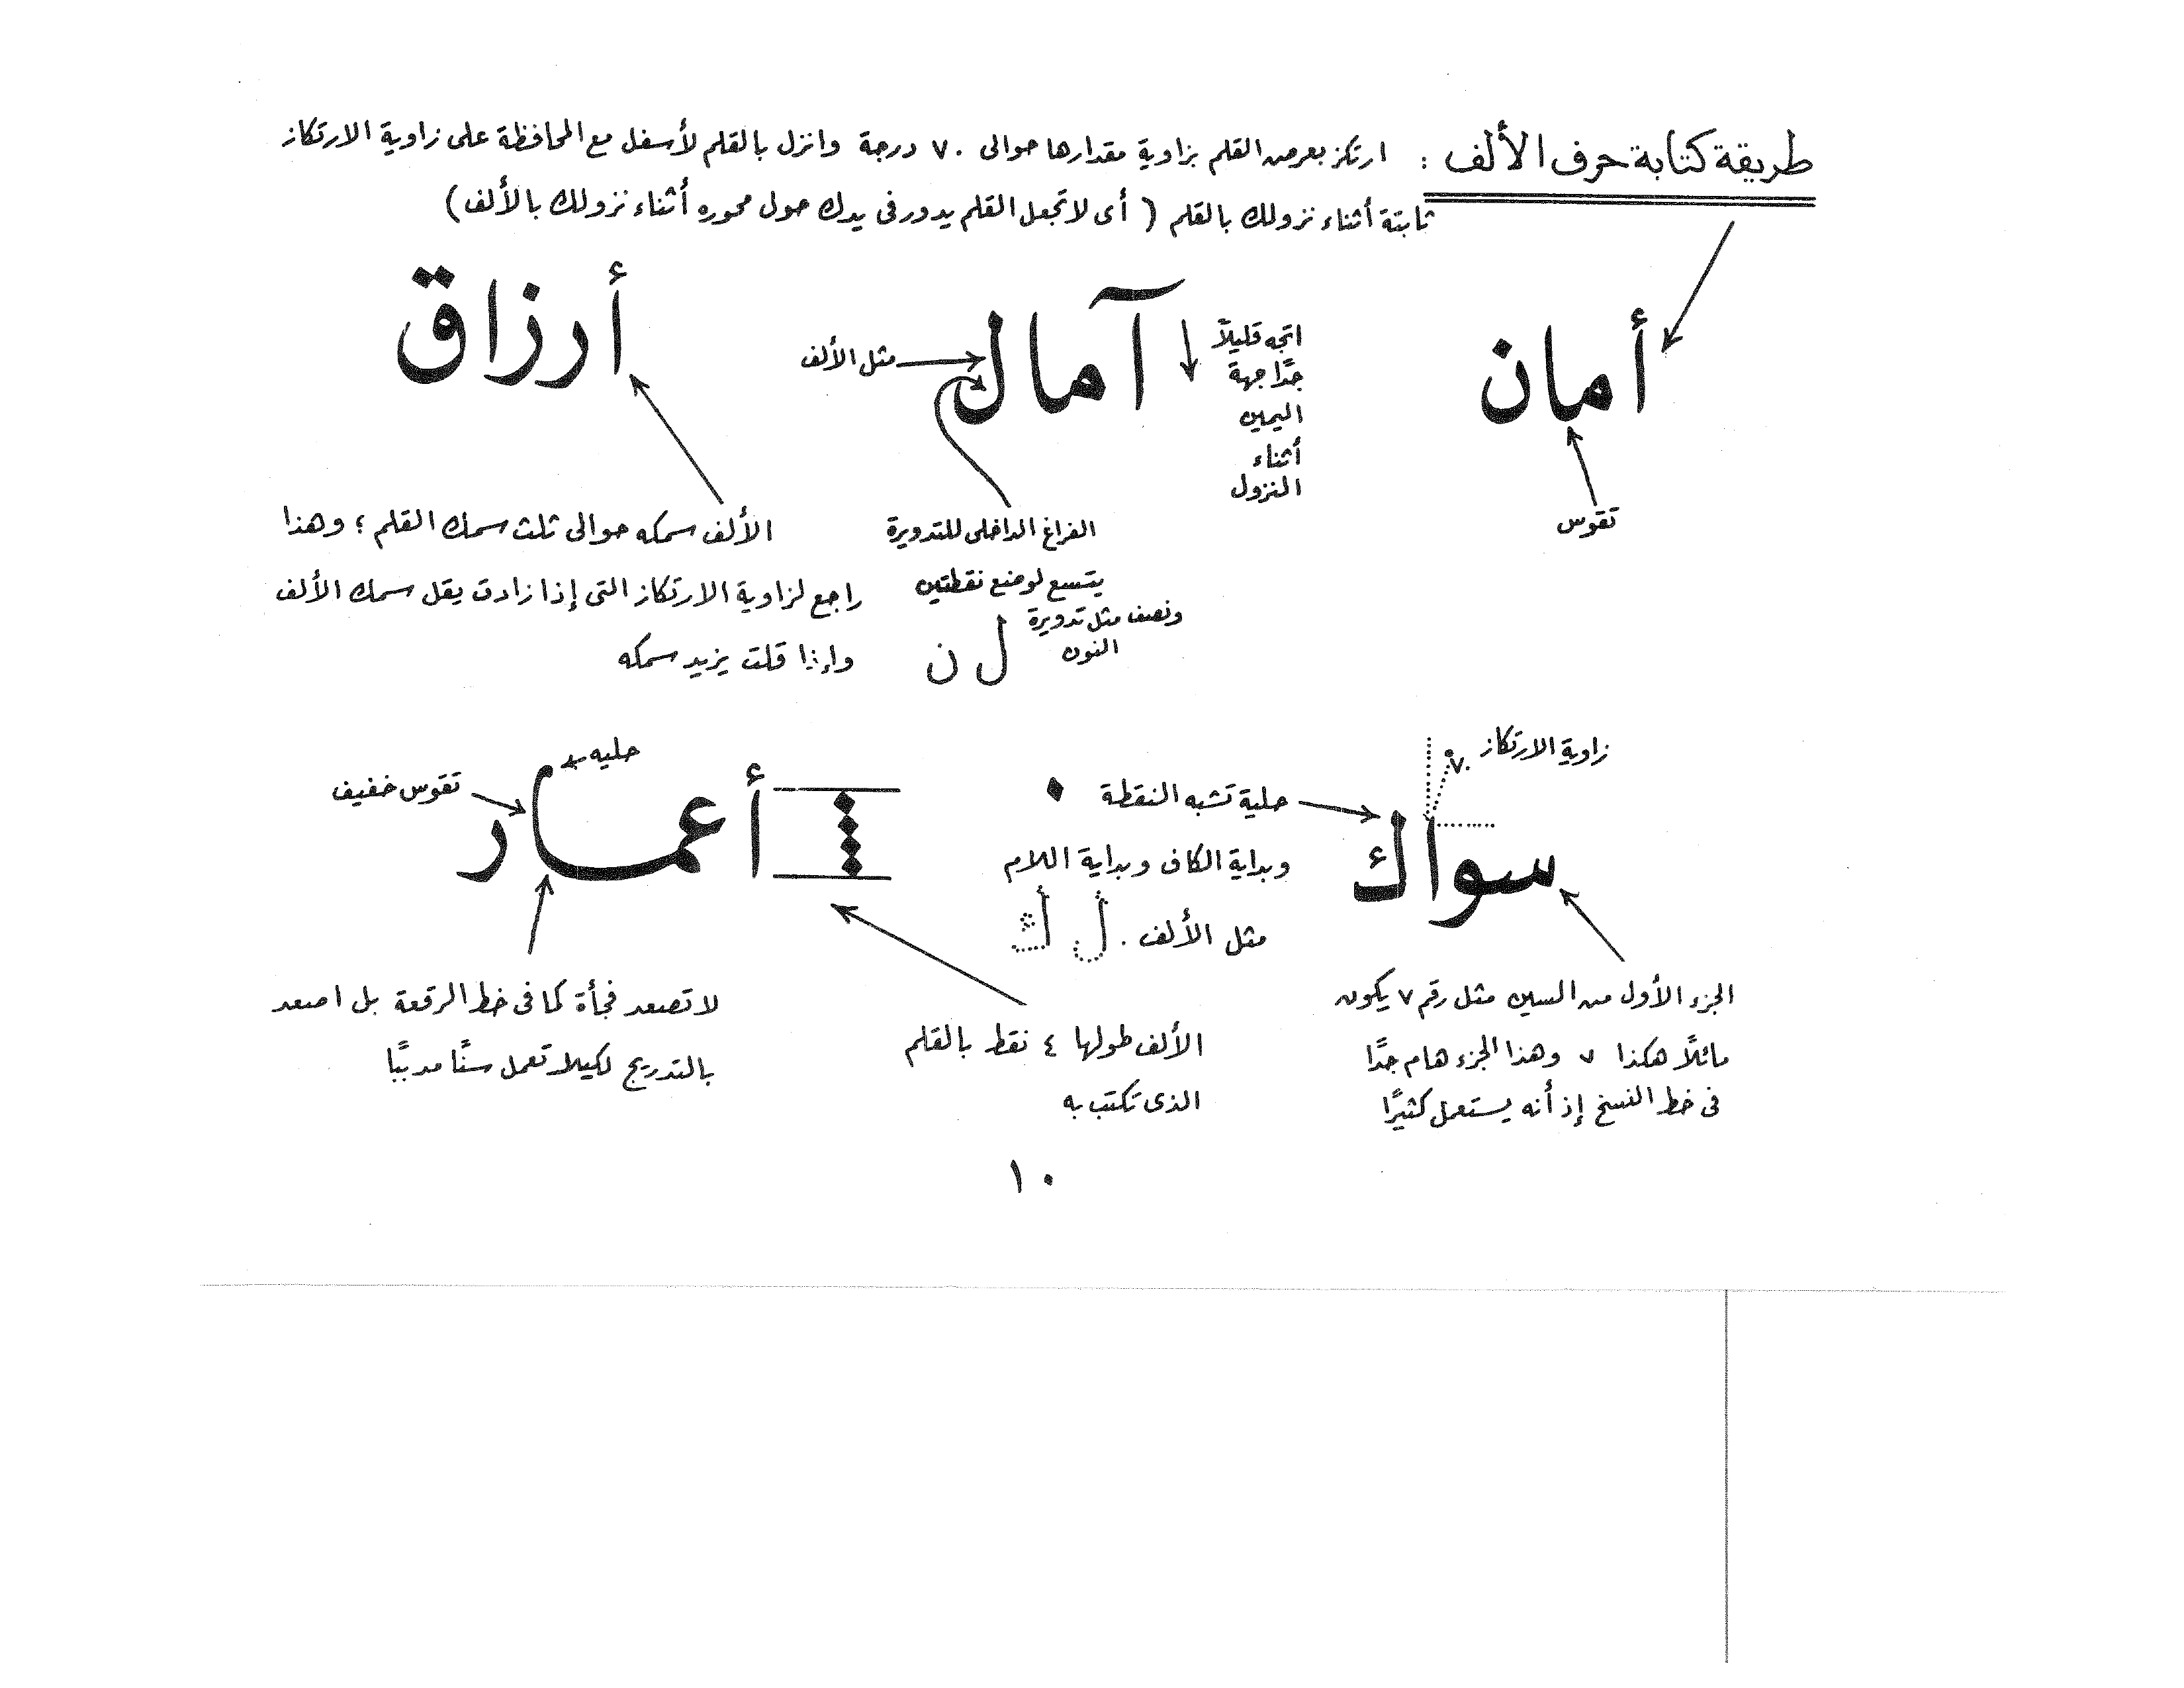 طريقة كتابة حرف الألف : ارتكز بعرض القلم بزاوية مقدارها حوالى ٧٠ درجة وانزل بالقلم لأسفل مع المحافظة على زاوية الارتكاز
ثابتة أثناء نزولك بالقلم ( أى لا تجعل القلم يدور فى يدك حول محوره أثناء نزولك بالألف )
أمان
تقوس
اتجه قليلاً
جدًا جهة
اليمين
أثناء
النزول
آمال
مثل الألف
الفراغ الداخلى للتدويرة
يتسع لوضع نقطتين
ونصف مثل تدويرة
النون
ل ن
أرزاق
الألف سمكه حوالى ثلث سمك القلم ؛ وهذا
راجع لزاوية الارتكاز التى إذا زادت يقل سمك الألف
وإذا قلت يزيد سمكه
زاوية الارتكاز
٧٠°
سواك
الجزء الأول من السين مثل رقم ٧ يكون
مائلًا هكذا ٧ وهذا الجزء هام جدًا
فى خط النسخ إذ أنه يستعمل كثيرًا
حلية تشبه النقطة
وبداية الكاف وبداية اللام
مثل الألف . ل ك
أعمار
حليه
تقوس خفيف
الألف طولها ٤ نقط بالقلم
الذى تكتب به
لا تصعد فجأة كما فى خط الرقعة بل اصعد
بالتدريج لكيلا تعمل سنًا مدببًا
١٠